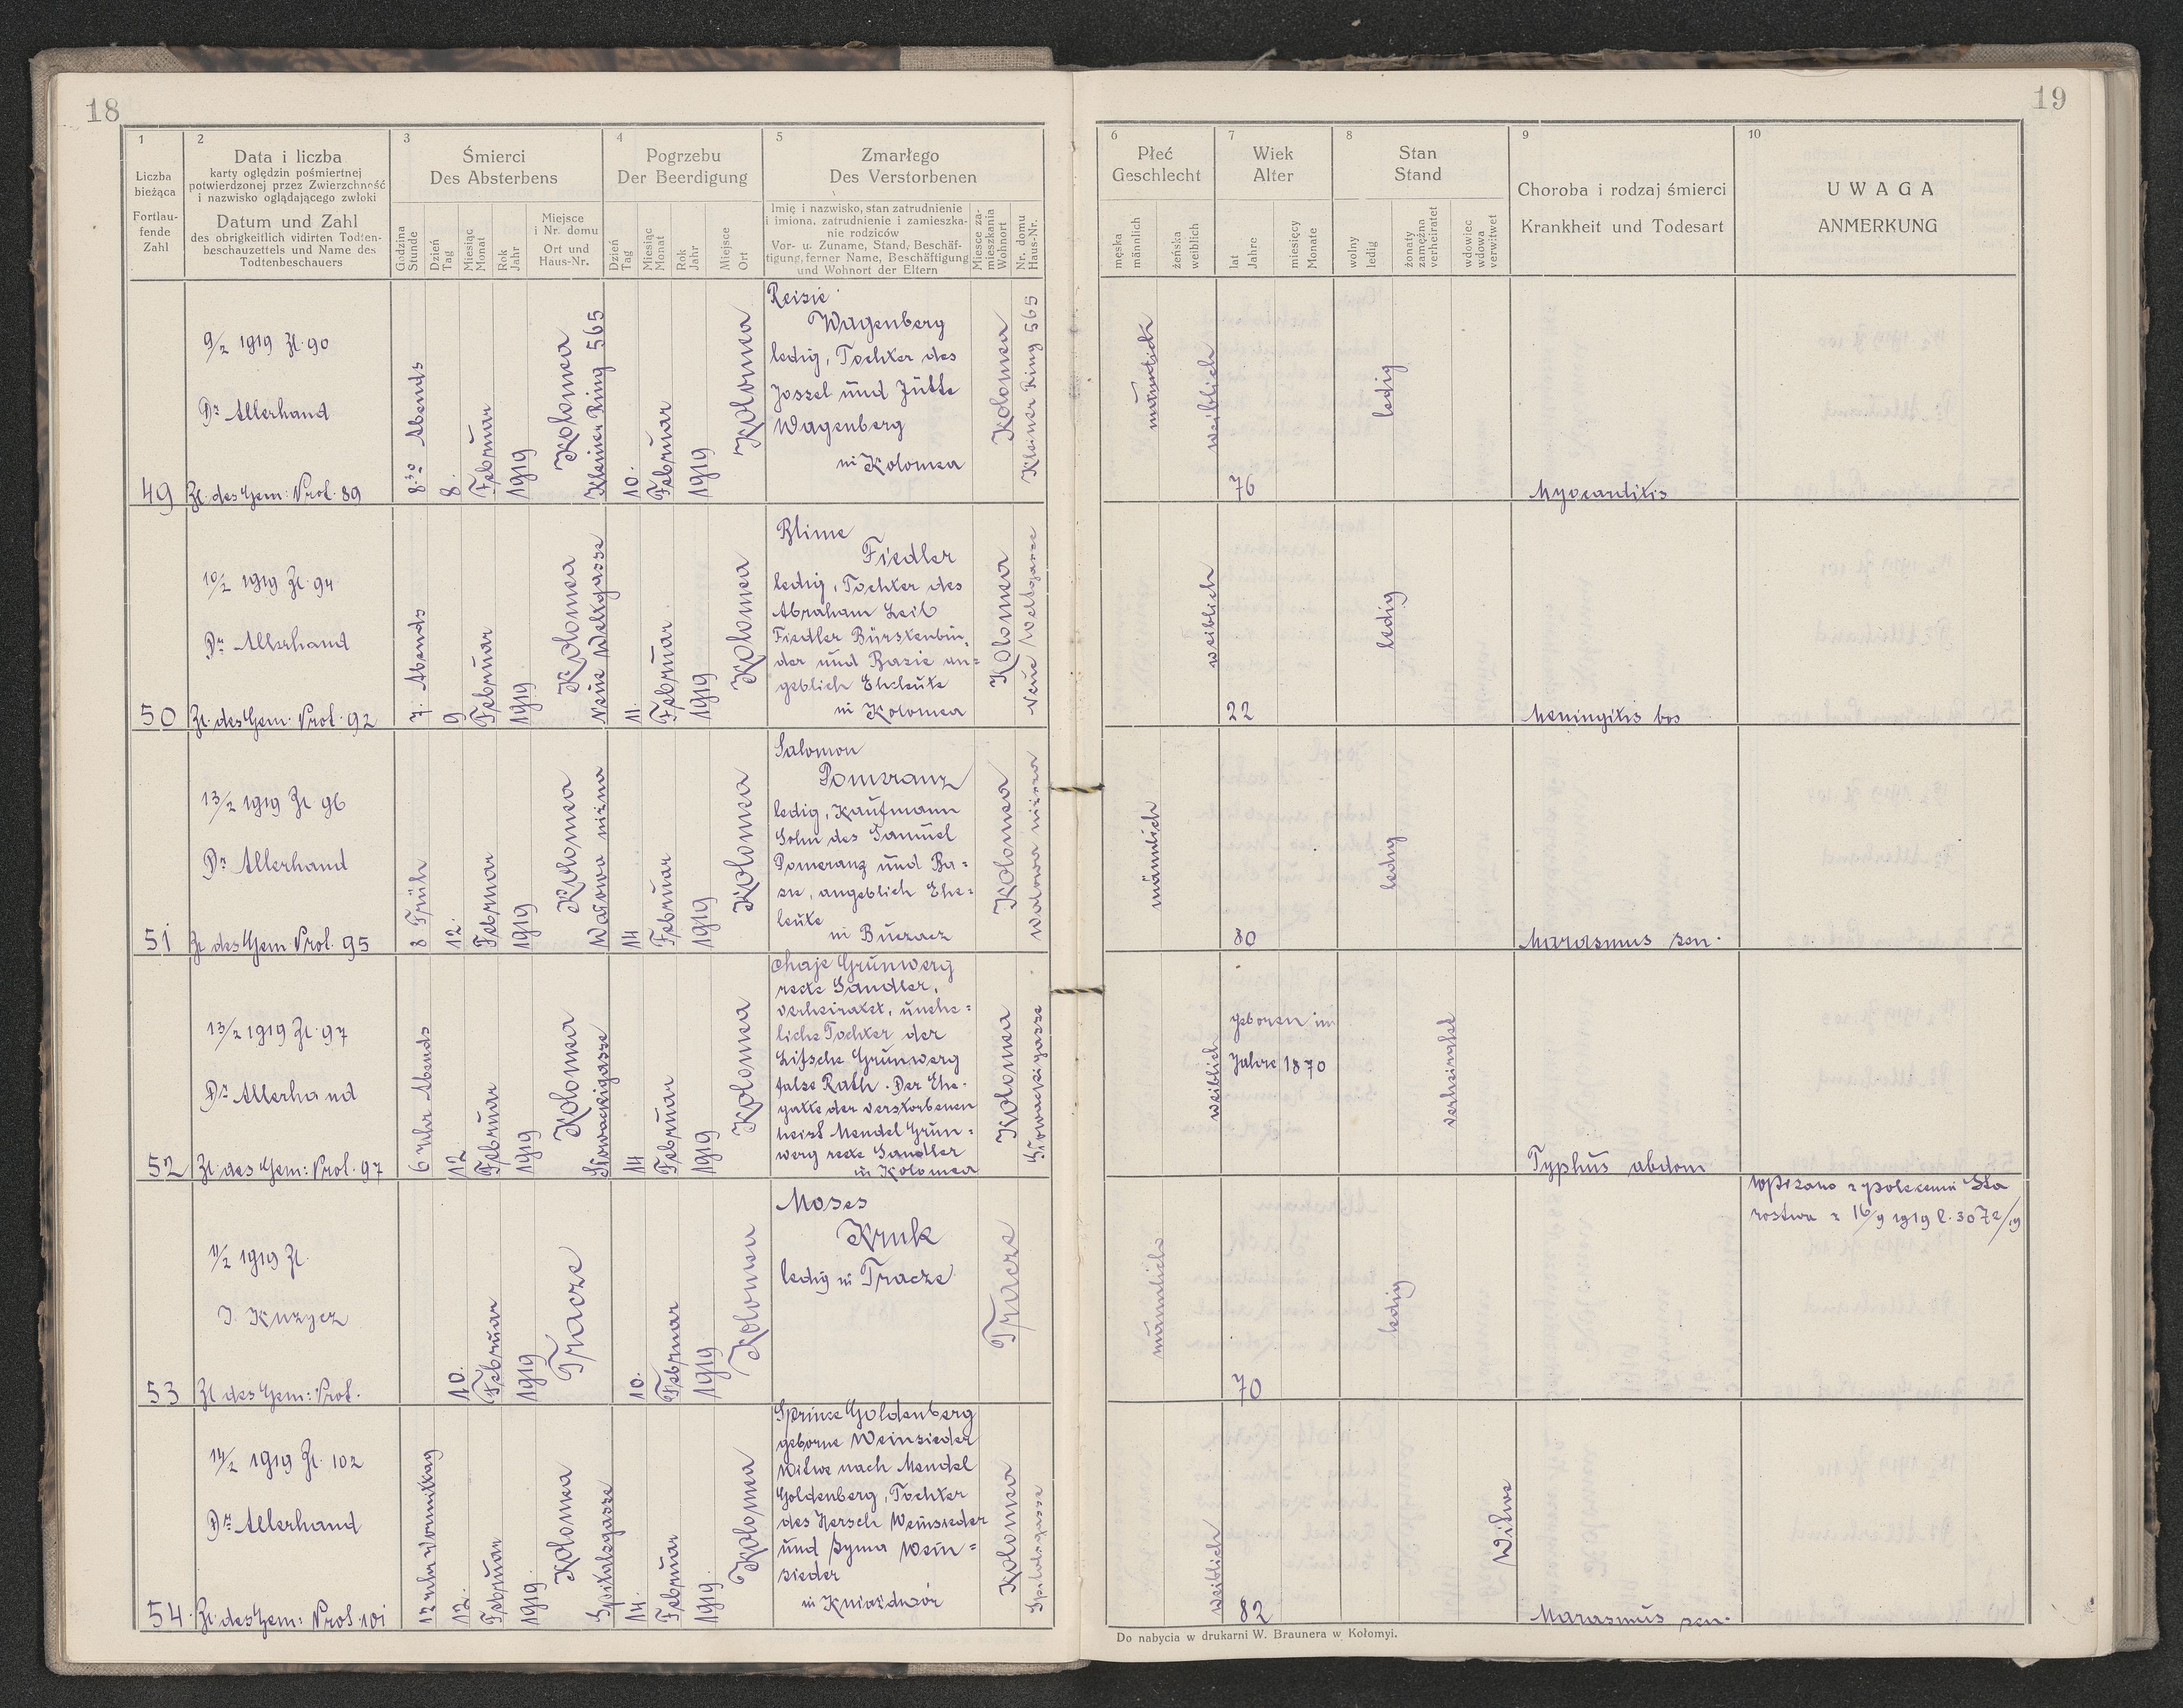 18
1
Liczba
bieżąca
Fortlau-
fende
Zahl
2
Data i liczba
karty oględzin pośmiertnej
potwierdzonej przez Zwierzchność
i nazwisko oglądającego zwłoki
Datum und Zahl
des obrigkeitlich vidirten Todten-
beschauzettels und Name des
Todtenbeschauers
3
Śmierci
Des Absterbens
Godzina
Stunde
Dzień
Tag
Miesiąc
Monat
Rok
Jahr
Miejsce
i Nr. domu
Ort und
Haus-Nr.
4
Pogrzebu
Der Beerdigung
Dzień
Tag
Miesiąc
Monat
Rok
Jahr
Miejsce
Ort
5
Zmarłego
Des Verstorbenen
Imię i nazwisko, stan zatrudnienie
i imiona, zatrudnienie i zamieszka-
nie rodziców
Vor- u. Zuname, Stand, Beschäf-
tigung, ferner Name, Beschäftigung
und Wohnort der Eltern
Miejsce za-
mieszkania
Wohnort
Nr. domu
Haus-Nr.
49
9/2 1919 Zl. 90
Dr Allerhand
Zl. des Gem: Prot. 89
8.30 Abends
8.
Februar
1919
Kolomea
Kleiner Ring 565
10.
Februar
1919
Kolomea
Reisie
Wagenberg
ledig, Tochter des
Jossel und Jütte
Wagenberg
in Kolomea
Kolomea
Kleiner Ring 565
50
10/2 1919 Zl. 94
Dr Allerhand
Zl. des Gem. Prot. 92
7. Abends
9
Februar
1919
Kolomea
Neue Weltgasse
11.
Februar
1919
Kolomea
Blime
Fiedler
ledig, Tochter des
Abraham Leib
Fiedler Bürstenbin-
der und Basie an=
geblich Eheleute
in Kolomea
Kolomea
Neue Weltgasse
51
13/2 1919 Zl 96
Dr Allerhand
Zl des Gem Prot. 95
8 Früh
12.
Februar
1919
Kolomea
Wałowa niżna
14
Februar
1919
Kolomea
Salomon
Pomeranz
ledig, Kaufmann
Sohn des Samuel
Pomeranz und Ba=
sie, angeblich Ehe=
leute
in Buczacz
Kolomea
Wałowa niżna
52
13/2 1919 Zl. 97
Dr Allerhand
Zl. des Gem: Prot. 97
6 Uhr Abends
12
Februar
1919
Kolomea
Słowackigasse
14
Februar
1919
Kolomea
Chaje Grünwerg
recte Sandler,
verheiratet, unehe=
liche Tochter der
Lifsche Grünwerg
false Rath. Der Ehe-
gatte der verstorbenen
heist Mendel Grün=
werg recte Sandler
in Kolomea
Kolomea
Słowackigasse
53
11/2 1919 Zl.
J. Kurycz
Zl des Gem: Prot.
10.
Februar
1919
Tracze
10.
Februar
1919
Kolomea
Moses
Kruk
ledig in Tracze
Tracze
54.
14/2 1919 Zl. 102
Dr Allerhand
Zl. des Gem: Prot 101
12 Uhr Vormittag
12.
Februar
1919.
Kolomea
Spitalsgasse
14.
Februar
1919.
Kolomea
Sprince Goldenberg
geborne Weinsieder
Witwe nach Mendel
Goldenberg, Tochter
des Hersch Weinsieder
und Syma Wein=
sieder
in Kniaźdwór
Kolomea
Spitalsgasse
19
6
Płeć
Geschlecht
męska
männlich
żeńska
weiblich
7
Wiek
Alter
lat
Jahre
miesięcy
Monate
8
Stan
Stand
wolny
ledig
żonaty
zamężna
verheiratet
wdowiec
wdowa
verwitwet
9
Choroba i rodzaj śmierci
Krankheit und Todesart
10
UWAGA
ANMERKUNG
männlich
weiblich
76
ledig
Myocarditis
weiblich
22
ledig
Meningitis
männlich
80
ledig
Marasmus sen.
weiblich
geboren im
Jahre 1870
verheiratet
Typhus abdom
männlich
70
ledig
Wpisano z polecenia Sta
rostwa z 16/9 1919 l. 3072/19
weiblich
82
Witwe
Marasmus sen.
Do nabycia w drukarni W. Braunera w Kołomyi.